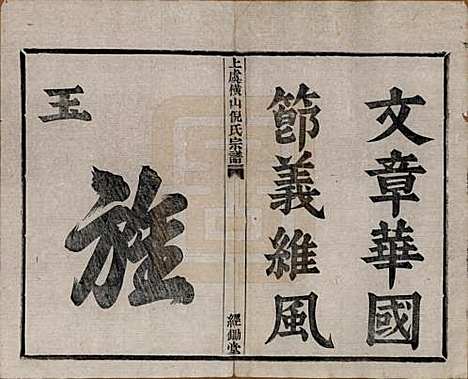 文章華國
節義維風
上虞橫山倪氏宗譜
經鋤堂
旌